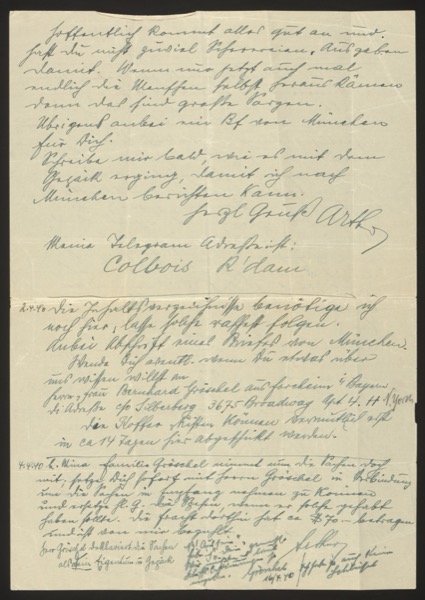 hoffentlich kommt alles gut an und
hast du nicht zuviel Scherereien, Ausgaben
damit. Wenn nur jetzt auch mal
endlich die Menschen selbst heraus kämen
denn das sind große Sorgen.
Übrigens anbei ein Bf von München
für Dich.
Schreibe mir bald, wie es mit dem
Gepäck erging, damit ich nach
München berichten kann.
Herzl Gruß Arthur
Meine Telegram Adresse ist:
Colbois R'dam
2.4.40 Die Inhaltsverzeichnisse benötige ich
noch hier, lasse solche raschest folgen.
Anbei Abschrift eines Briefes von München.
Wende Dich eventl. wenn Du etwas über
uns wissen willst an
Herrn, Frau Bernhard Gröschel aus Forchheim i/ Bayern
di Adresse c/o Silberberg 3675 Broadway Apt 4. H N. York
Die Koffer, Kisten können vermutlich erst
in ca 14 Tagen hier abgeschickt werden.
4.4.40 L. Mina Familie Gröschel nimmt nun die Sachen doch
mit, setze Dich sofort mit Herrn Gröschel in Verbindung
um die Sachen in Empfang nehmen zu können
und ersetze H. G. die Spesen wenn er solche gehabt
haben sollte. Die Fracht dürfte ca $ 70.- betragen
und ist von mir bezahlt.
Herr Gröschel deklariert die Sachen
als sein Eigentum u Gepäck
Arthur